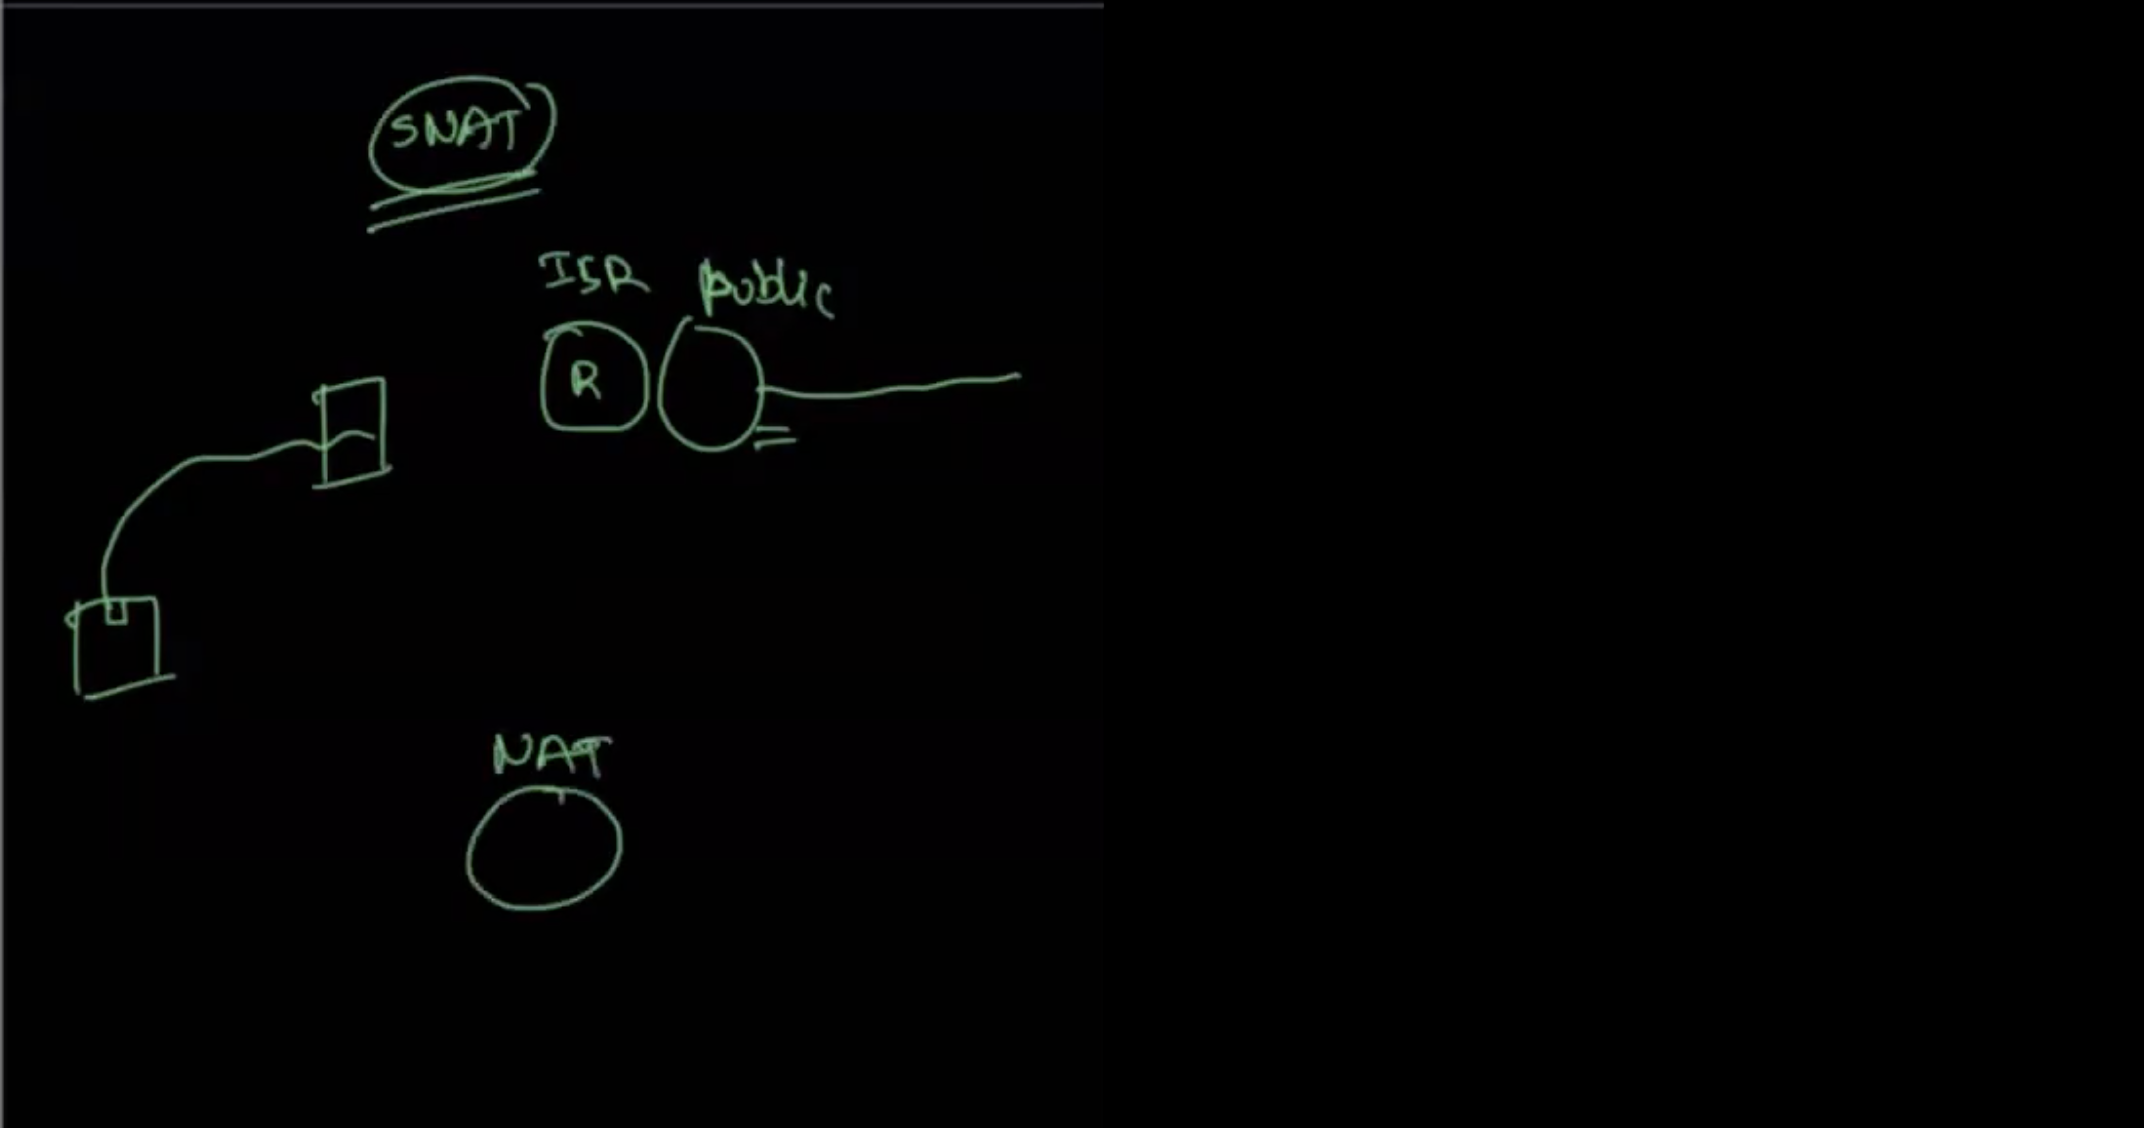 SNAT
ISR public
R
NAT